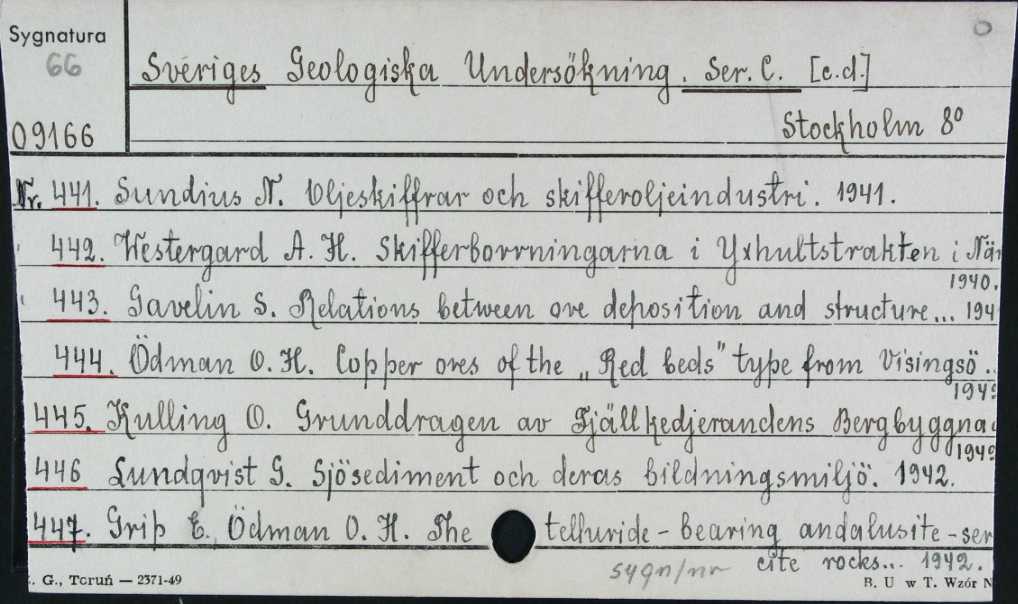 Sygnatura
66
09166
Sveriges Geologiska Undersökning. Ser. C. [c.d.]
Stockholm 8º
Nr. 441. Sundius N. Oljeskiffrar och skifferoljeindustri. 1941.
442. Westergard A. H. Skifferborrningarna i Yxhultstrakten i När
1940.
443. Gavelin S. Relations between ore deposition and structure... 194
444. Ödman O. H. Copper ores of the „Red beds" type from Visingsö..
194
445. Kulling O. Grunddragen av Fjällkedjerandens Bergbyggna
194
446 Lundqvist G. Sjösediment och deras bildningsmiljö. 1942.
447. Grip E., Ödman O. H. The telluride-bearing andalusite-ser
cite rocks... 1942.
sygn/nr
. G., Toruń — 2371-49
B. U w T. Wzór N